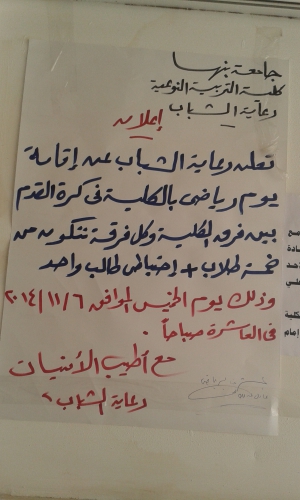 جامعة بنها
كلية التربية النوعية
رعاية الشباب
إعلان
تعلن رعاية الشباب عن إقامة
يوم رياضى بالكلية فى كرة القدم
بين فرق الكلية وكل فرقة تتكون من
خمسة طلاب + إحتياطى طالب واحد
وذلك يوم الخميس الموافق ٢٠١٤/١١/٦
فى العاشرة صباحاً .
مع أطيب الأمنيات
رعاية الشباب